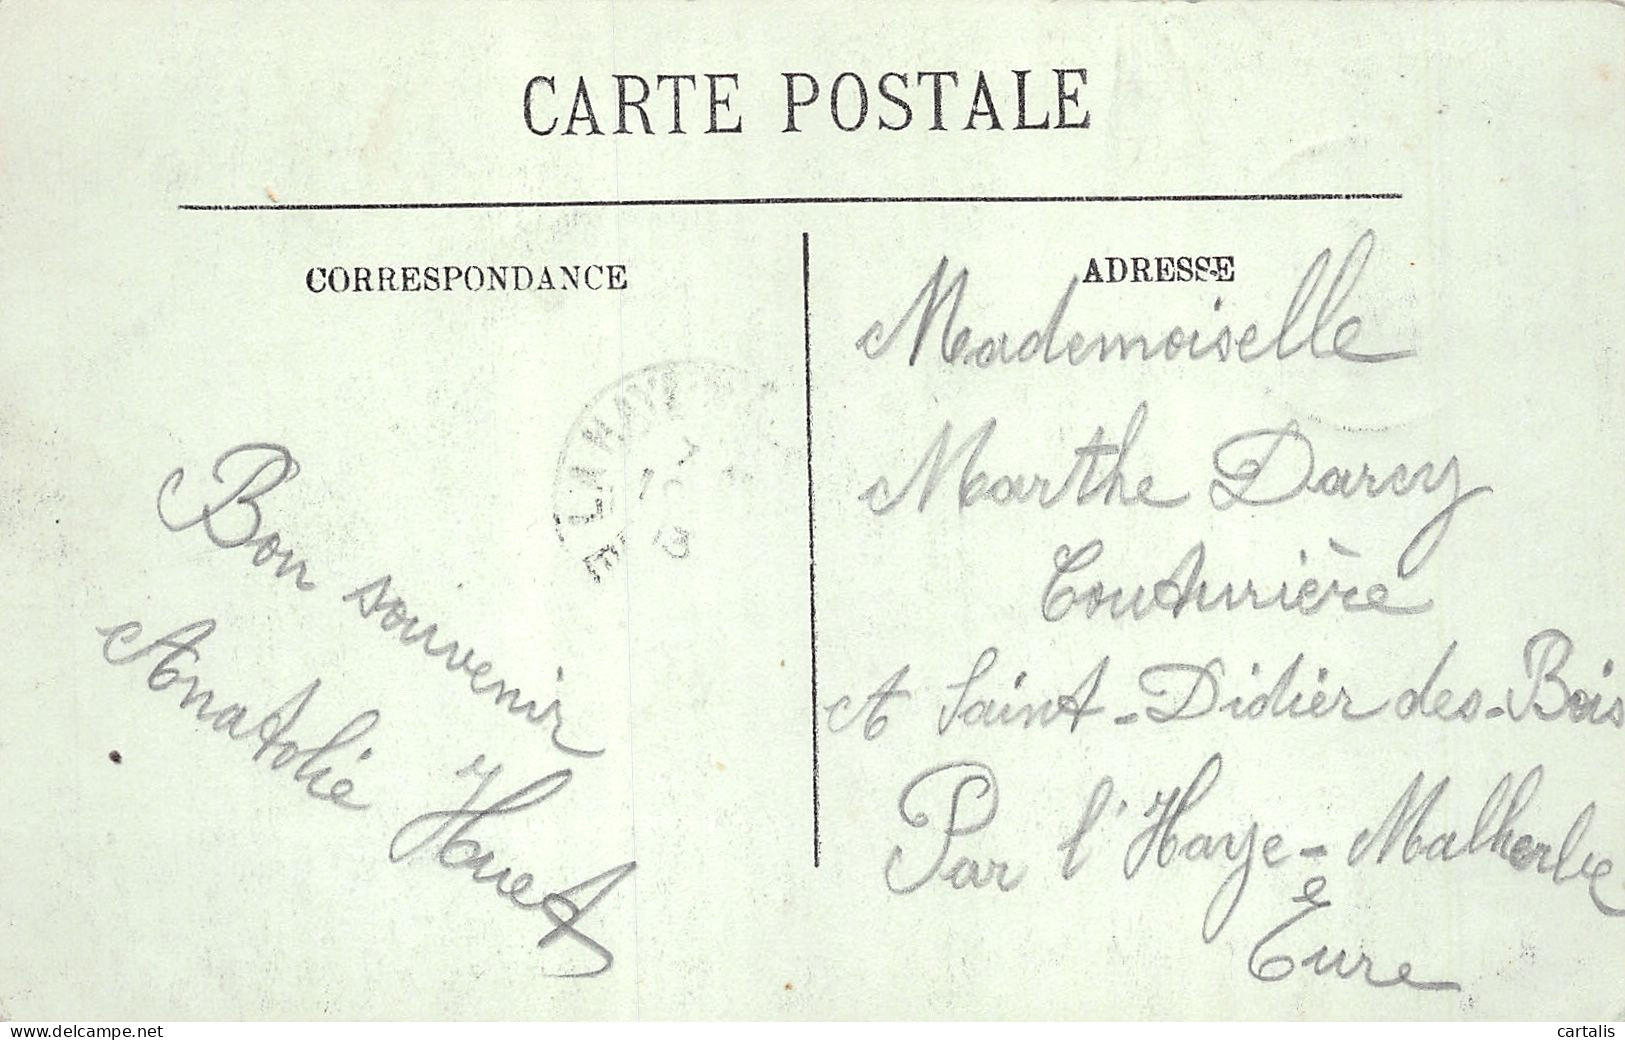 CARTE POSTALE
CORRESPONDANCE
ADRESSE
Bon souvenir
Anatolie Huet
LA HAYE
Mademoiselle
Marthe Darcy
Couturière
A Saint-Didier des-Bois
Par l'Haye-Malherbe
Eure
cartalis